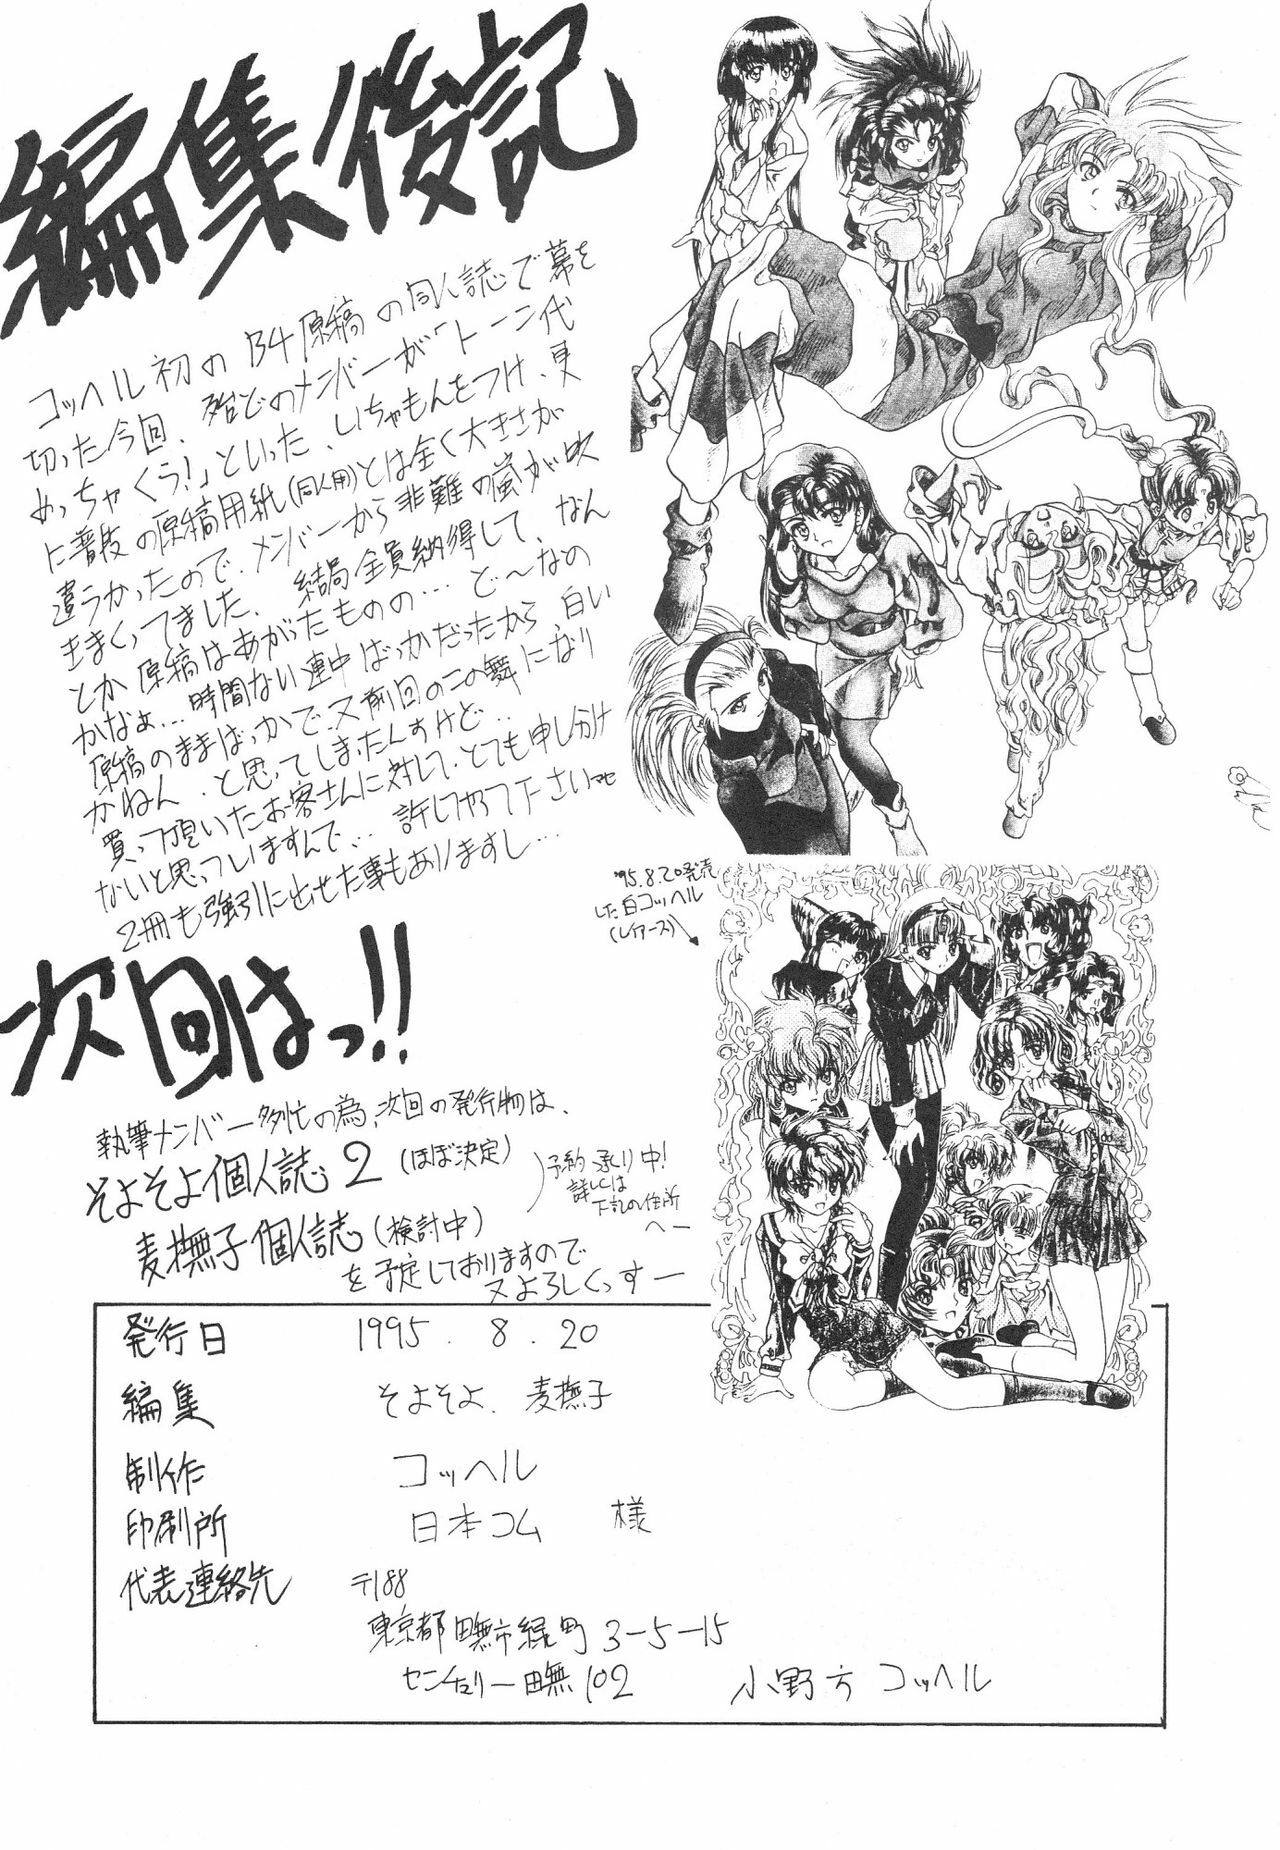 編集後記
コッヘル初のB4原稿の同人誌で幕を
切った今回、殆どのメンバーが「トーン代
めっちゃくう!」といった、いちゃもんをつけ、更
に普段の原稿用紙(同人用)とは全く大きさが
違うかったので、メンバーから非難の嵐が吹
きまくってました。結局全員納得して、なん
とか原稿はあがったものの…ど〜なの
かなぁ…時間ない連中ばっかだったから、白い
原稿のままばっかで又前回のこの舞になり
かねん、と思ってしまったんすけど…
買って頂いたお客さんに対して、とても申し分け
ないと思っていますんで…許しやって下さいませ
2冊も強引に出せた事もありますし…
'95.8.20発売
した白コッヘル
(レイアース)
次回はっ!!
執筆メンバー多忙の為、次回の発行物は、
そよそよ個人誌2(ほぼ決定)
麦撫子個人誌(検討中)
予約承り中!
詳しくは
下記の住所
へー
を予定しておりますので
又よろしくっすー
発行日 1995.8.20
編集 そよそよ、麦撫子
制作 コッヘル
印刷所 日本コム 様
代表連絡先 〒188
東京都田無市緑町3-5-15
センチュリー田無102 小野方 コッヘル